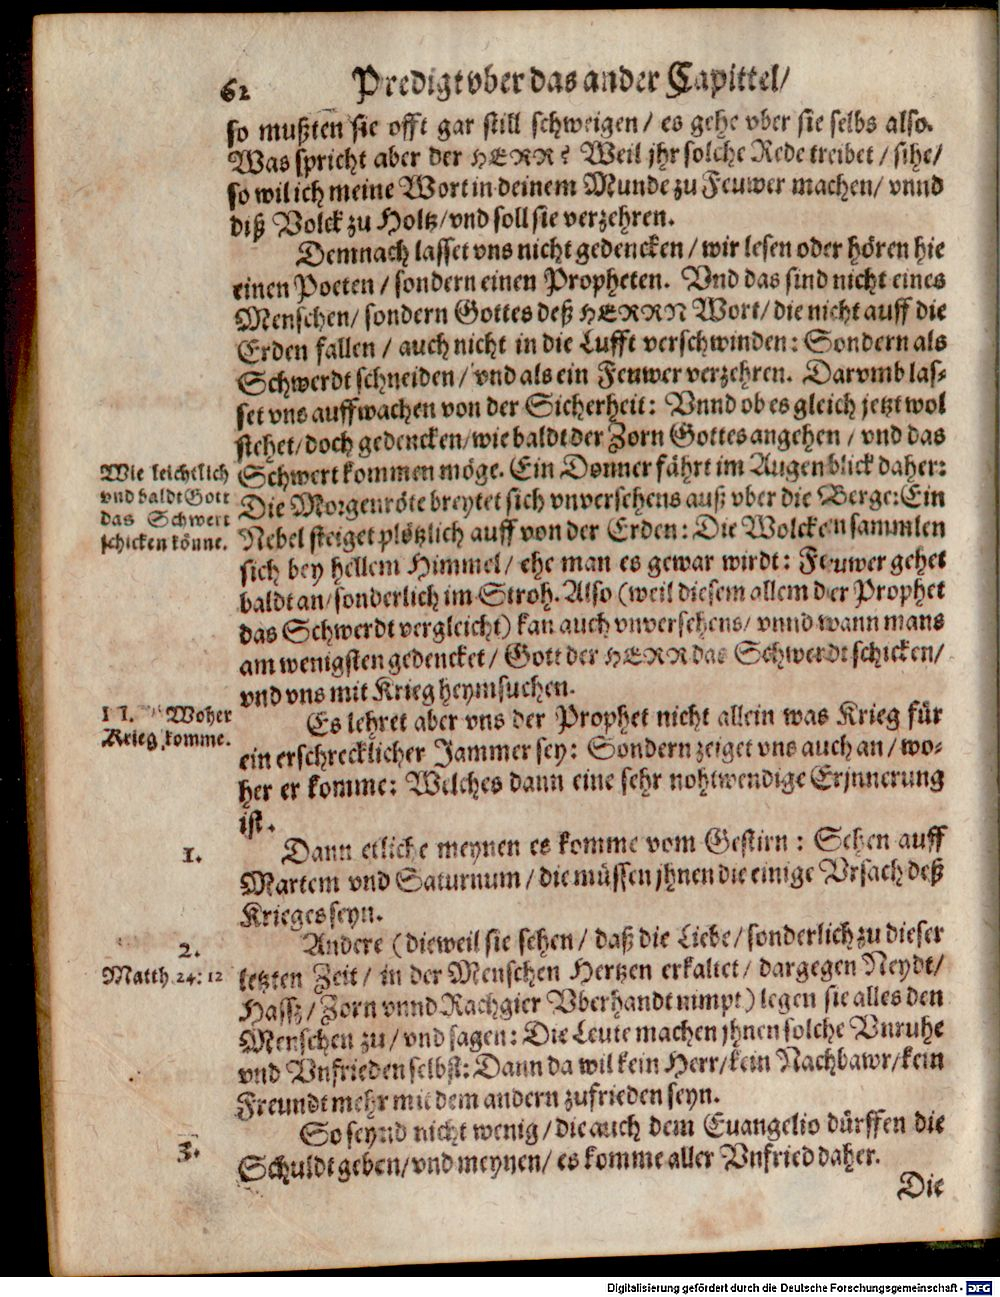 62 Predigt vber das ander Capittel/
so mußten sie offt gar still schweigen / es gehe vber sie selbs also.
Was spricht aber der HERR? Weil jhr solche Rede treibet / sihe/
so wil ich meine Wort in deinem Munde zu Feuwer machen/ vnnd
diß Volck zu Holtz/vnd soll sie verzehren.
Demnach lasset vns nicht gedencken / wir lesen oder hören hie
einen Poeten / sondern einen Propheten. Vnd das sind nicht eines
Menschen/ sondern Gottes deß HERRN Wort/ die nicht auff die
Erden fallen / auch nicht in die Lufft verschwinden: Sondern als
Schwerdt schneiden/ vnd als ein Feuwer verzehren. Darvmb las-
set vns auffwachen von der Sicherheit: Vnnd ob es gleich jetzt wol
stehet/doch gedencken/wie baldt der Zorn Gottes angehen / vnd das
Wie leichtlich
vnd baldt Gott
das Schwert
schicken könne.
Schwert kommen möge. Ein Donner fährt im Augenblick daher:
Die Morgenröte breytet sich vnversehens auß vber die Berge: Ein
Nebel steiget plötzlich auff von der Erden: Die Wolcken sammlen
sich bey hellem Himmel/ ehe man es gewar wirdt: Feuwer gehet
baldt an/sonderlich im Stroh. Also (weil diesem allem der Prophet
das Schwerdt vergleicht) kan auch vnversehens/ vnnd wann mans
am wenigsten gedencket/ Gott der HERR das Schwerdt schicken/
vnd vns mit Krieg heymsuchen.
II. Woher
Krieg komme.
Es lehret aber vns der Prophet nicht allein was Krieg für
ein erschrecklicher Jammer sey: Sondern zeiget vns auch an/ wo-
her er komme: Welches dann eine sehr nohtwendige Erjnnerung
ist.
1.
Dann etliche meynen es komme vom Gestirn: Sehen auff
Martem vnd Saturnum/ die müssen jhnen die einige Vrsach deß
Krieges seyn.
2.
Matth. 24: 12
Andere (dieweil sie sehen/ daß die Liebe/ sonderlich zu dieser
letzten Zeit/ in der Menschen Hertzen erkaltet/ dargegen Neydt/
Hassz/ Zorn vnnd Rachgier Vberhandt nimpt) legen sie alles den
Menschen zu/ vnd sagen: Die Leute machen jhnen solche Vnruhe
vnd Vnfrieden selbst: Dann da wil kein Herr/kein Nachbawr/kein
Freundt mehr mit dem andern zufrieden seyn.
3.
So seynd nicht wenig/ die auch dem Euangelio dürffen die
Schuldt geben/vnd meynen/ es komme aller Vnfried daher.
Die
Digitalisierung gefördert durch die Deutsche Forschungsgemeinschaft - DFG